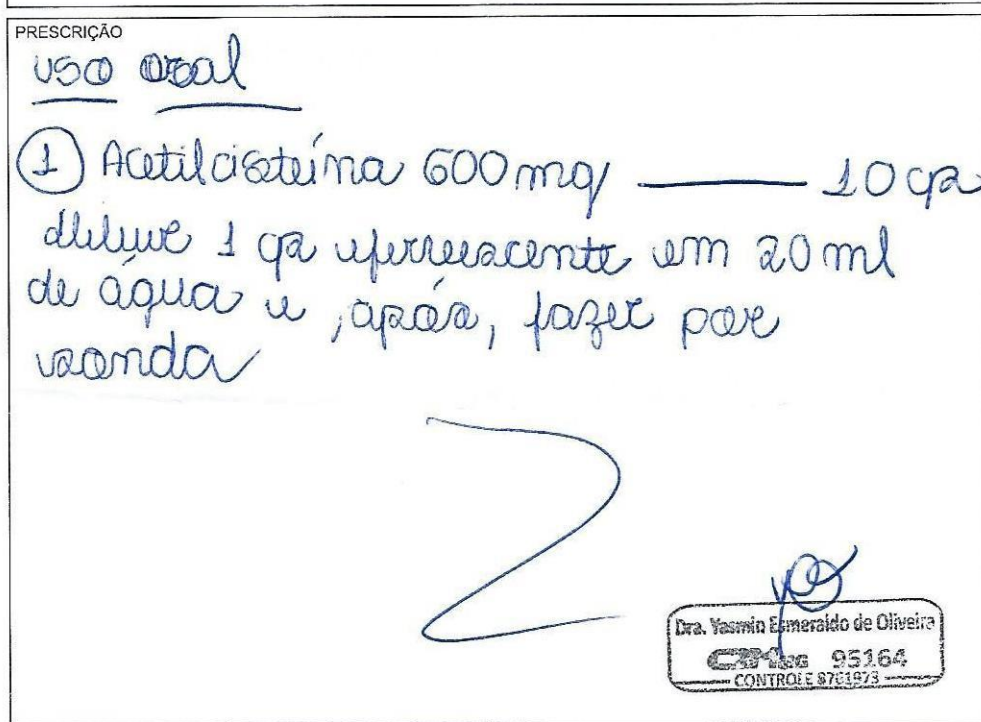 PRESCRIÇÃO
uso oral
1 Acetilcisteína 600 mg —— 10 cps
dilui 1 cp efervescente em 20 ml
de água e, após, fazer por
sonda
Dra. Yasmin Esmeraldo de Oliveira
CRMMG 95164
CONTROLE 8761973